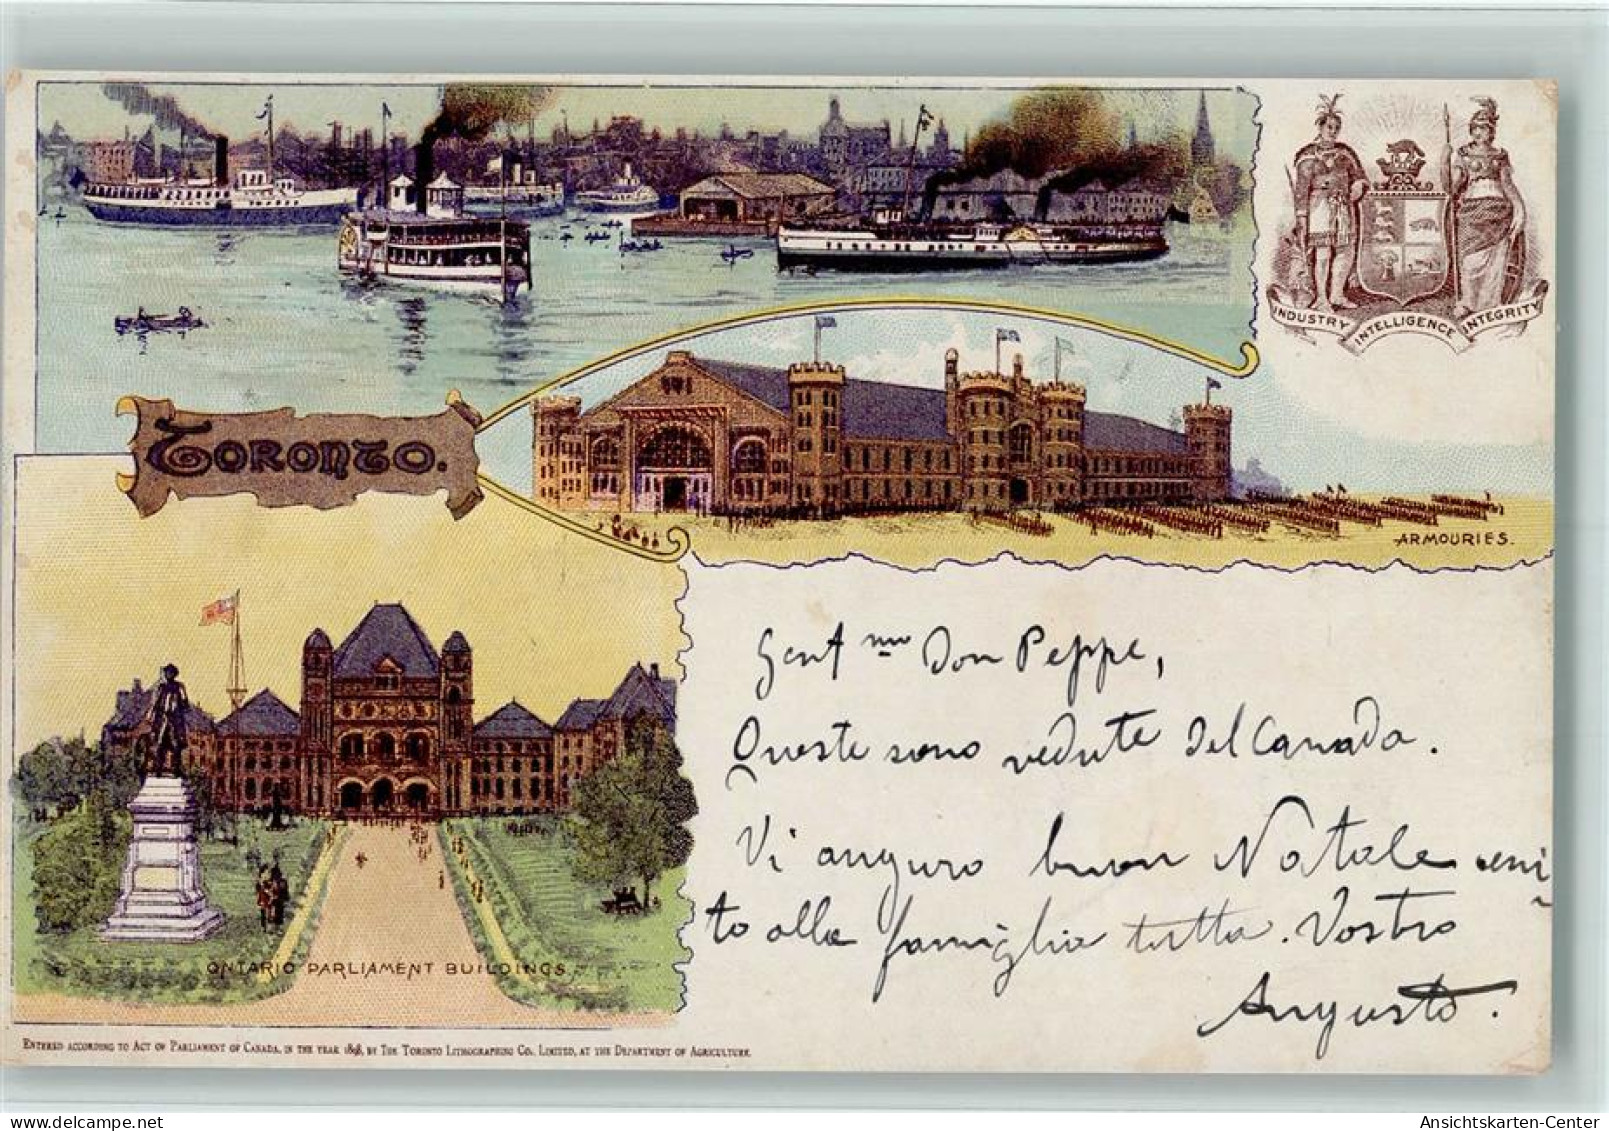 INDUSTRY INTELLIGENCE INTEGRITY
TORONTO.
ARMOURIES.
Gent mo Don Peppe,
Queste sono vedute del Canada.
Vi anguro buon Natale uni
to alla famiglia tutta. Vostro
Angusto.
ONTARIO PARLIAMENT BUILDINGS
ENTERED ACCORDING TO ACT OF PARLIAMENT OF CANADA, IN THE YEAR 1898, BY THE TORONTO LITHOGRAPHING CO., LIMITED, AT THE DEPARTMENT OF AGRICULTURE.
Ansichtskarten-Center